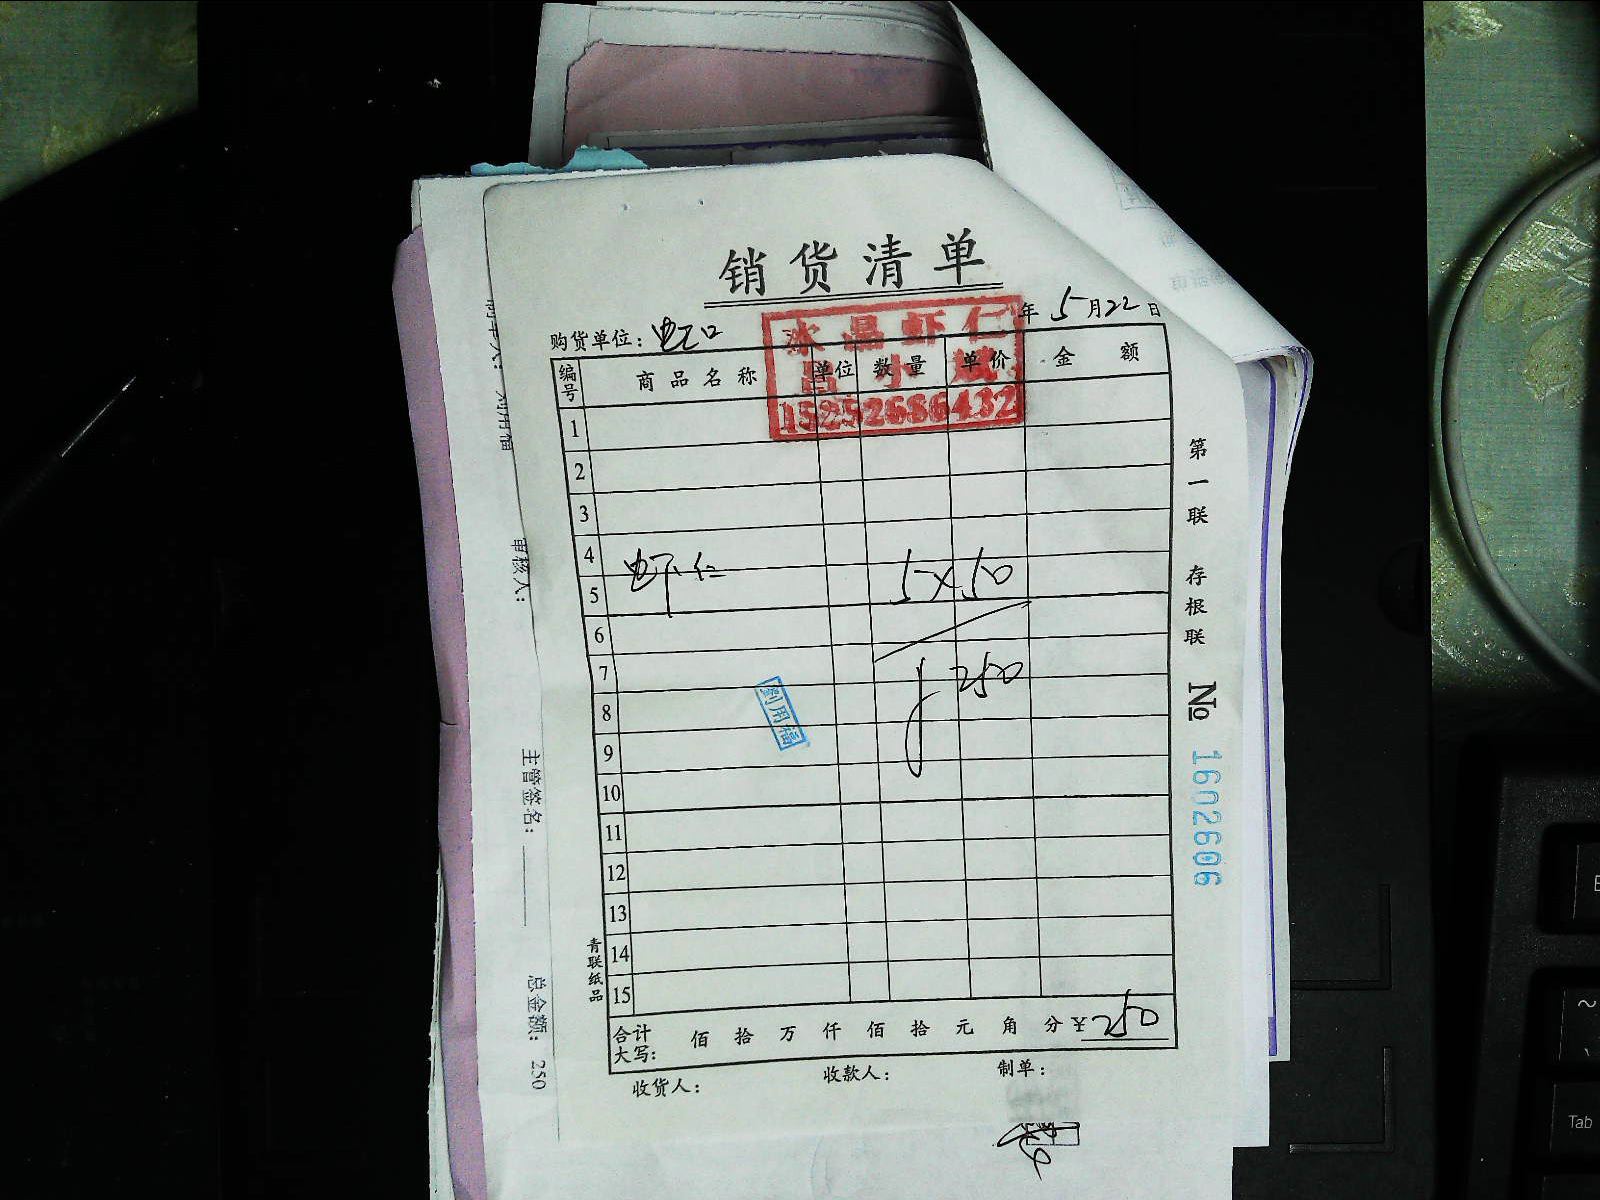 销货清单
购货单位：虹口 年 5 月 22 日
冰晶虾仁
15252686432
编号 商品名称 单位 数量 单价 金额
1
2
3
4
虾仁 5×50
5
6
7
250
8
刘用福
9
10
11
12
13
14
15
合计大写： 佰 拾 万 仟 佰 拾 元 角 分 ¥250
收货人： 收款人： 制单：
第一联 存根联 № 1602606
青联纸品
刘用福
审核人：
主管签名：
总金额： 250
Tab